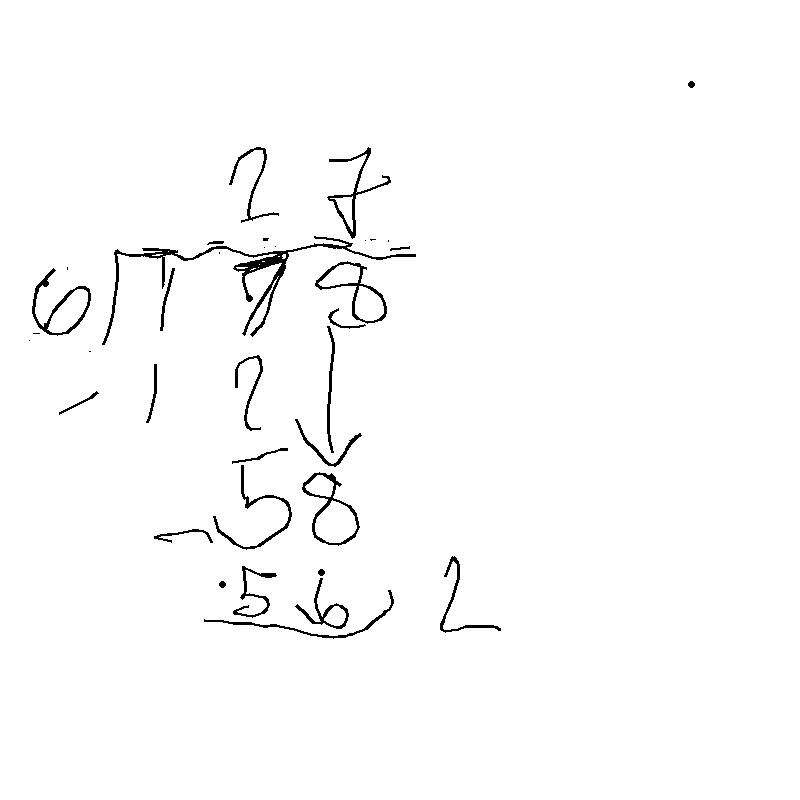 27
6)178
- 12
58
- 56 2